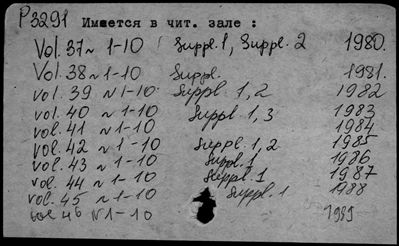 P3291 Имеется в чит. зале :
Vol. 37 N 1-10 Suppl. 1, Suppl. 2 1980.
Vol. 38 N 1-10 Suppl. 1981.
vol. 39 N 1-10. Suppl. 1, 2 1982
vol. 40 N 1-10 Suppl. 1, 3 1983
vol. 41 N 1-10 1984
vol. 42 N 1-10 Suppl. 1, 2 1985
vol. 43 N 1-10 Suppl. 1 1986
vol. 44 N 1-10 Suppl. 1 1987
vol. 45 N 1-10 Suppl. 1 1988
vol. 46 N 1-10 1989